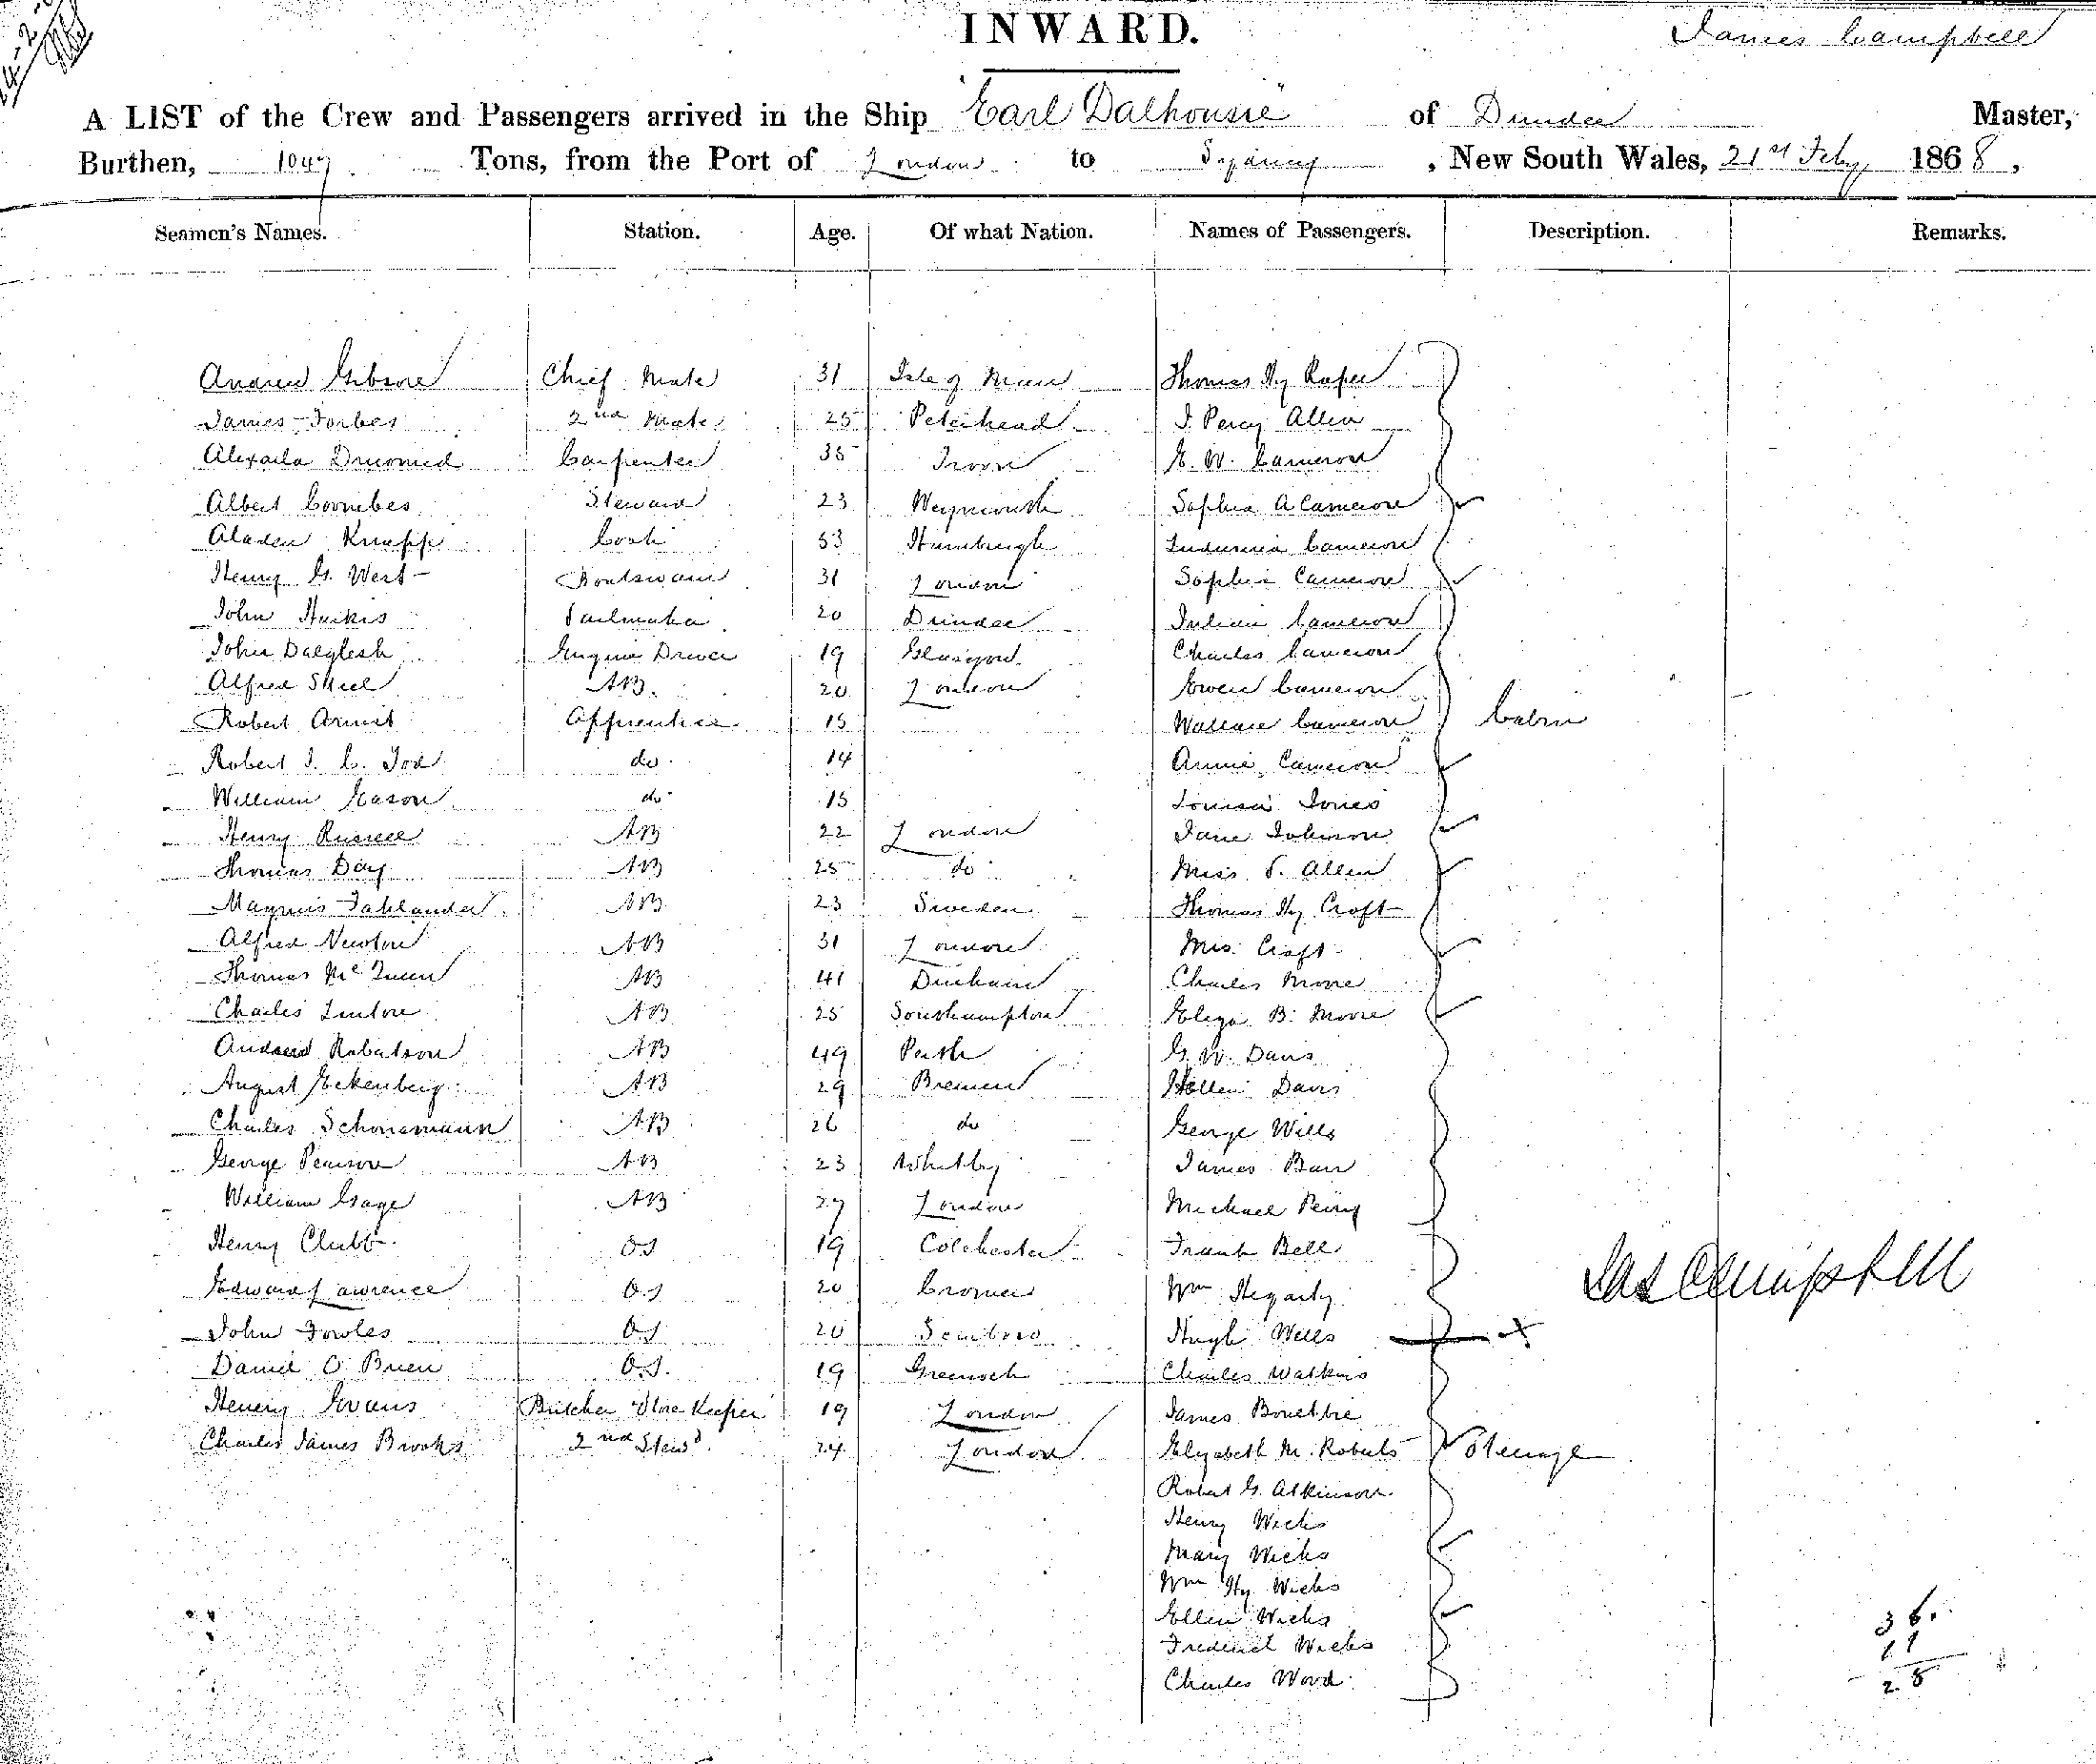 INWARD.
James Campbell
A LIST of the Crew and Passengers arrived in the Ship "Earl Dalhousie" of Dundee Master,
Burthen, 1047 Tons, from the Port of London to Sydney, New South Wales, 21st Feby 1868,
Seamen's Names. Station. Age. Of what Nation. Names of Passengers. Description. Remarks.
Andrew Gibson Chief Mate 31 Isle of Man Thomas Hy Roper
James Forbes 2nd Mate 25 Peterhead J. Percy Allen
Drumond Carpenter 35 Troon E. W. Cameron
Albert Coombes Steward 23 Weymouth Sophia A Cameron
Knapp Cook 53 Cameron
Henry G. West Boatswain 31 London Sophia Cameron
John Sailmaker 20 Dundee Julian Cameron
John Dalglesh Engine Driver 19 Glasgow Charles Cameron
Alfred AB. 20 London Ewen Cameron
Robert Armit Apprentice 15 Wallace Cameron Cabin
Robert J. C. Tod do 14 Annie Cameron
William Eason do 15 Louisa Jones
Henry Russell AB 22 London Jane Johnson
Thomas Day AB 25 do Miss S. Allen
Magnus Fahlander AB 23 Sweden Thomas Hy Croft
Alfred Newton AB 31 London Mrs. Croft
Thomas McQueen AB 41 Durham Charles Moore
Charles Linton AB 25 Southampton Eliza B. Moore
Andrew Robertson AB 49 Perth G. W. Davis
August Eekenberg AB 29 Bremen Hellen Davis
Charles Schonemann AB 26 do George Wills
George Pearson AB 23 Whitby James Barr
William Gage AB 27 London Michael Perry
Henry Clubb OS 19 Colchester Frank Bell
Edward Lawrence OS 20 Cromer Wm Hegarty
Jas Campbell
John Fowles OS 20 Hugh Wells
Daniel O'Brien O.S. 19 Greenock Charles Watkins
Henery Evans Butcher Store Keeper 19 London James
Charles James Brooks 2nd Stewd 24 London Elyzabeth M. Roberts Steerage
Robert G. Atkinson
Henry Wicks
Mary Wicks
Wm Hy Wicks
Ellen Wicks
Frederick Wicks
Charles Wood
36.
11
28